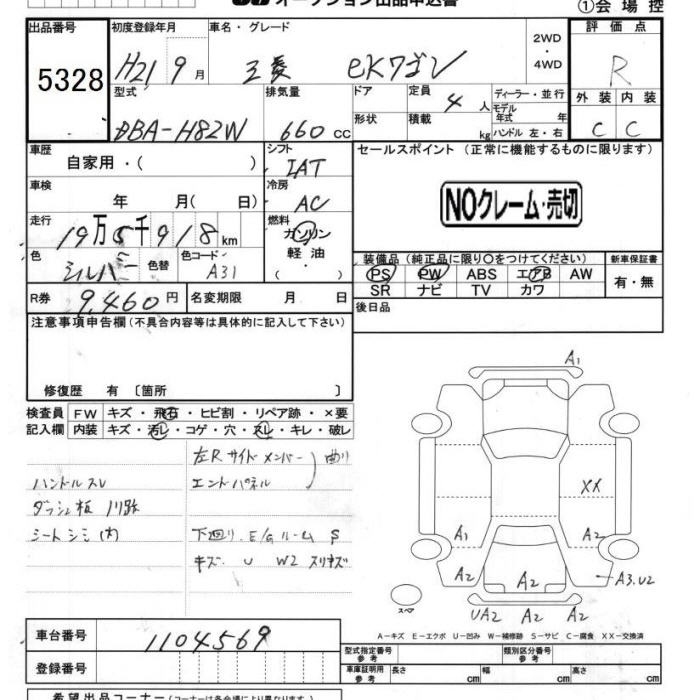 オークション出品申込書
①会場控
出品番号 初度登録年月 車名・グレード 2WD ・ 4WD 評価点
5328 H21 9月 三菱 eKワゴン R
型式 排気量 ドア 定員 4人 ディーラー・並行 外装 内装
DBA-H82W 660cc 形状 積載 kg モデル年式 年 ハンドル 左・右 C C
車歴 自家用・( ) シフト IAT セールスポイント (正常に機能するものに限ります)
車検 年 月( 日) 冷房 AC NOクレーム・売切
走行 19万5千918km 燃料 ガソリン・軽油・( )
色 シルバー 色替 色コード A31
装備品 (純正品に限り○をつけてください) 新車保証書
PS PW ABS エアB AW 有・無
SR ナビ TV カワ
R券 9,460円 名変期限 月 日 後日品
注意事項申告欄(不具合内容等は具体的に記入して下さい)
修復歴 有 〔箇所 〕
検査員 FW キズ・飛石・ヒビ割・リペア跡・×要
記入欄 内装 キズ・汚レ・コゲ・穴・スレ・キレ・破レ
左R サイドメンバー 曲り
ハンドルスレ エンドパネル
ダッシュ板
シートシミ(内) 下廻り.E/Gルーム S
キズ. U W2 スリキズ
A1
XX
A1 A2
A2 A2 A2 A3.U2
スペア UA2 A2 A2
A-キズ E-エクボ U-凹み W-補修跡 S-サビ C-腐食 XX-交換済
車台番号 1104569
登録番号
型式指定番号 参考 類別区分番号 参考
車庫証明用 参考 長さ cm 幅 cm 高さ cm
希望出品コーナー(コーナーは各会場により異なります)